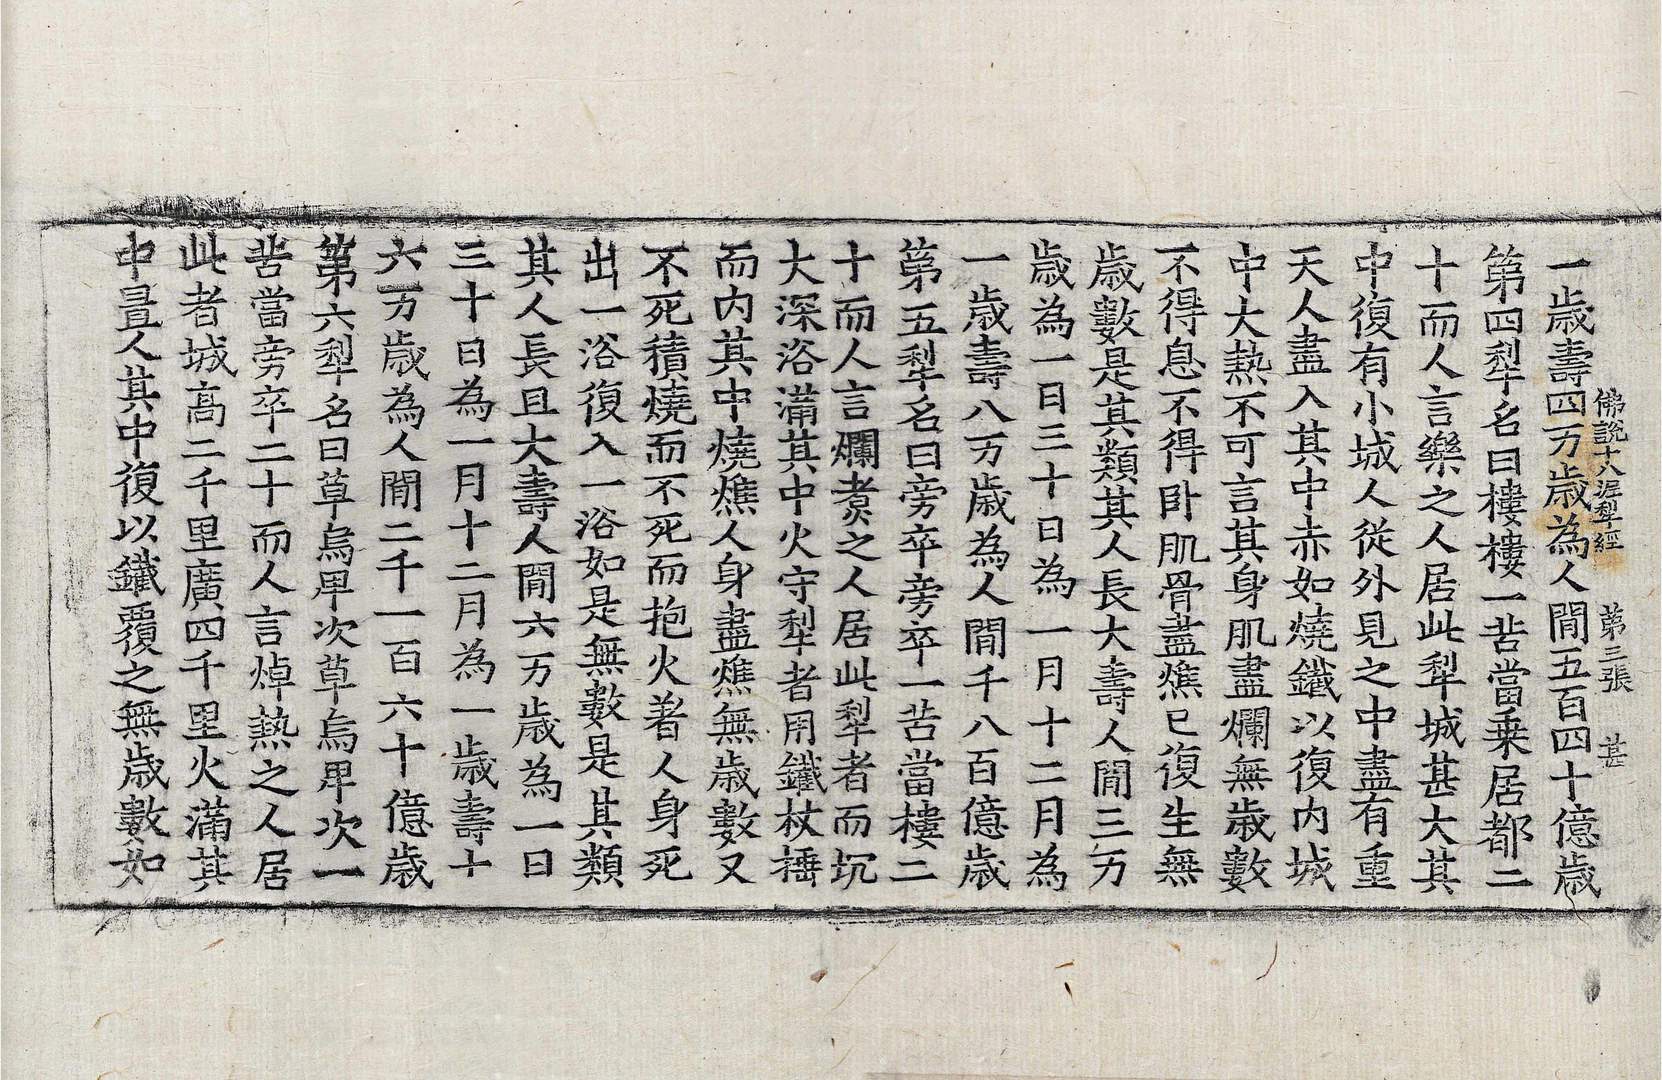 佛說十八泥犁經 第三張 甚
一歲壽四万歲為人間五百四十億歲
第四犁名曰樓樓一苦當乗居都二
十而人言樂之人居此犁城甚大其
中復有小城人從外見之中盡有重
天人盡入其中赤如燒鐵以復内城
中大熱不可言其身肌盡爛無歲數
不得息不得卧肌骨盡燋已復生無
歲數是其類其人長大壽人間三万
歲為一日三十日為一月十二月為
一歲壽八万歲為人間千八百億歲
第五犁名曰旁卒旁卒一苦當樓二
十而人言爛煮之人居此犁者而坑
大深浴滿其中火守犁者用鐵杖捶
而内其中燒燋人身盡燋無歲數又
不死積燒而不死而抱火著人身死
出一浴復入一浴如是無數是其類
其人長且大壽人間六万歲為一日
三十日為一月十二月為一歲壽十
六万歲為人間二千一百六十億歲
第六犁名曰草烏卑次草烏卑次一
苦當旁卒二十而人言焯熱之人居
此者城高二千里廣四千里火滿其
中畳人其中復以鐵覆之無歲數如